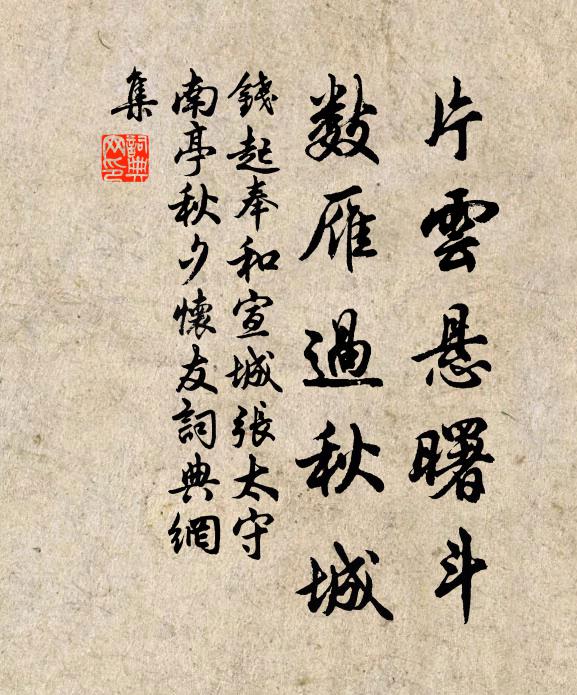 片雲悬曙斗
數雁過秋城
錢起奉和宣城張太守
南亭秋夕懷友詞典網
集
詞典
网印